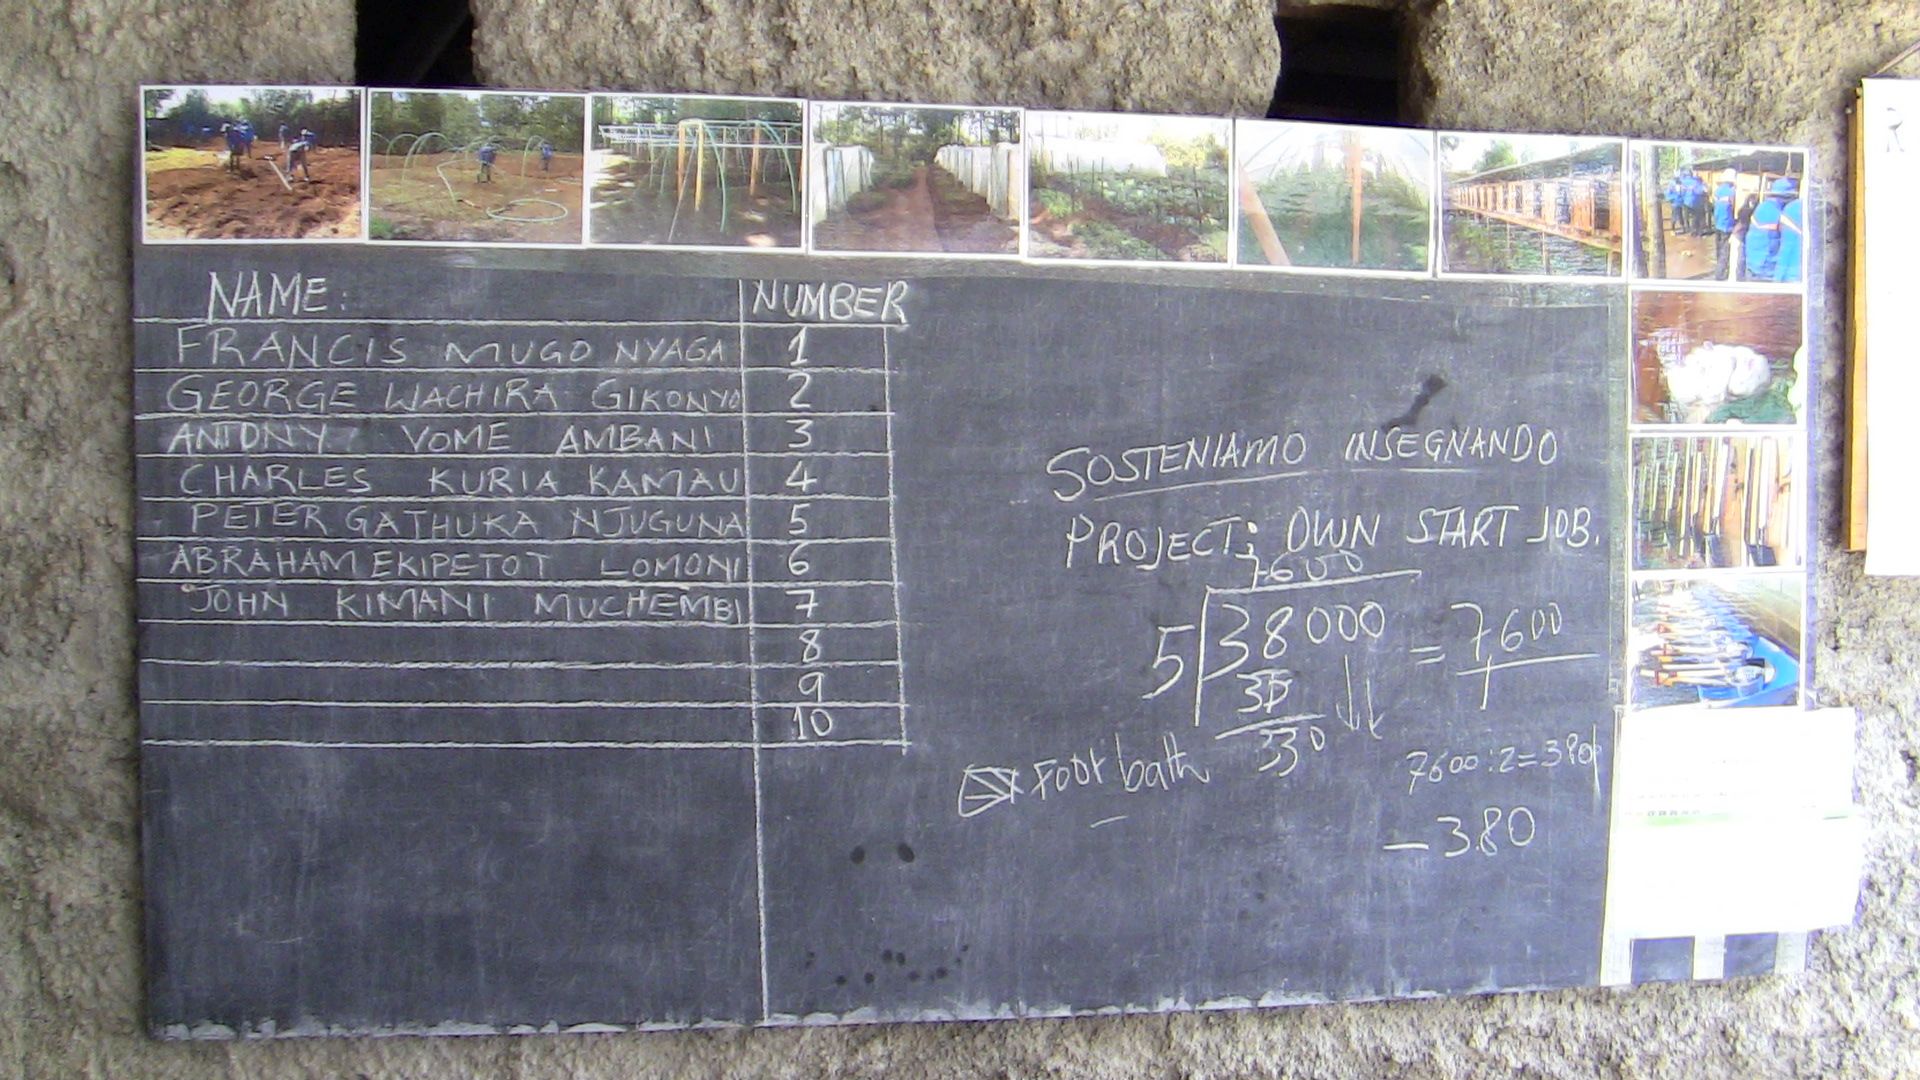 NAME: NUMBER
FRANCIS MUGO NYAGA 1
GEORGE WACHIRA GIKONYO 2
ANTONY VOME AMBANI 3
CHARLES KURIA KAMAU 4
PETER GATHUKA NJUGUNA 5
ABRAHAM EKIPETOT LOMONI 6
JOHN KIMANI MUCHEMBI 7
8
9
10
SOSTENIAMO INSEGNANDO
PROJECT: OWN START JOB.
7600
5 38000 = 7600
35
330
Foot bath
7600:2=380
- 3.80
R